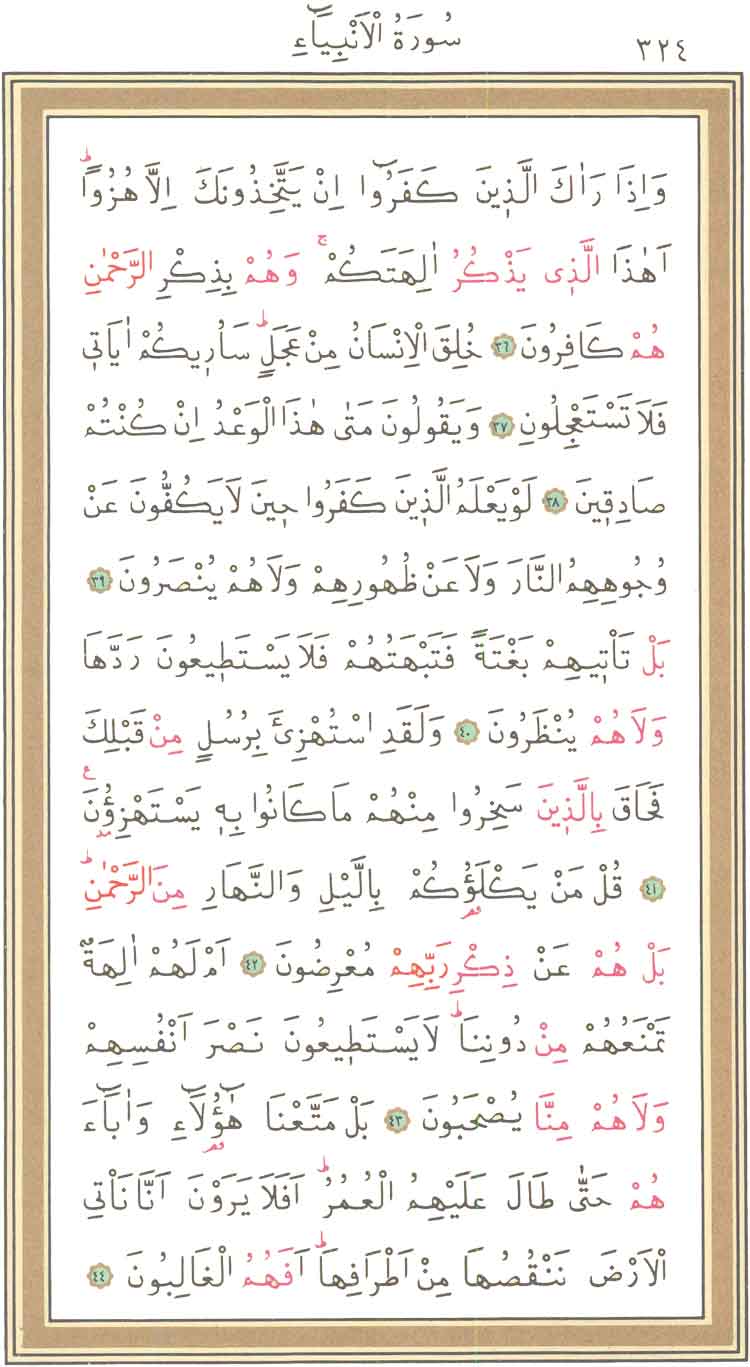 سُورَةُ الْاَنْبِيَٓاءِ ٣٢٤
وَاِذَا رَاٰكَ الَّذ۪ينَ كَفَرُٓوا اِنْ يَتَّخِذُونَكَ اِلَّا هُزُوًاۜ
اَهٰذَا الَّذ۪ي يَذْكُرُ اٰلِهَتَكُمْۚ وَهُمْ بِذِكْرِ الرَّحْمٰنِ
هُمْ كَافِرُونَ ﴿٣٦﴾ خُلِقَ الْاِنْسَانُ مِنْ عَجَلٍۜ سَاُر۪يكُمْ اٰيَات۪ي
فَلَا تَسْتَعْجِلُونِ ﴿٣٧﴾ وَيَقُولُونَ مَتٰى هٰذَا الْوَعْدُ اِنْ كُنْتُمْ
صَادِق۪ينَ ﴿٣٨﴾ لَوْ يَعْلَمُ الَّذ۪ينَ كَفَرُوا ح۪ينَ لَا يَكُفُّونَ عَنْ
وُجُوهِهِمُ النَّارَ وَلَا عَنْ ظُهُورِهِمْ وَلَا هُمْ يُنْصَرُونَ ﴿٣٩﴾
بَلْ تَأْت۪يهِمْ بَغْتَةً فَتَبْهَتُهُمْ فَلَا يَسْتَط۪يعُونَ رَدَّهَا
وَلَا هُمْ يُنْظَرُونَ ﴿٤٠﴾ وَلَقَدِ اسْتُهْزِئَ بِرُسُلٍ مِنْ قَبْلِكَ
فَحَاقَ بِالَّذ۪ينَ سَخِرُوا مِنْهُمْ مَا كَانُوا بِه۪ يَسْتَهْزِؤُ۫نَ ع
﴿٤١﴾ قُلْ مَنْ يَكْلَؤُ۬كُمْ بِالَّيْلِ وَالنَّهَارِ مِنَ الرَّحْمٰنِۜ
بَلْ هُمْ عَنْ ذِكْرِ رَبِّهِمْ مُعْرِضُونَ ﴿٤٢﴾ اَمْ لَهُمْ اٰلِهَةٌ
تَمْنَعُهُمْ مِنْ دُونِنَاۜ لَا يَسْتَط۪يعُونَ نَصْرَ اَنْفُسِهِمْ
وَلَا هُمْ مِنَّا يُصْحَبُونَ ﴿٤٣﴾ بَلْ مَتَّعْنَا هٰٓؤُ۬لَٓاءِ وَاٰبَٓاءَ
هُمْ حَتّٰى طَالَ عَلَيْهِمُ الْعُمُرُۜ اَفَلَا يَرَوْنَ اَنَّا نَأْتِي
الْاَرْضَ نَنْقُصُهَا مِنْ اَطْرَافِهَاۜ اَفَهُمُ الْغَالِبُونَ ﴿٤٤﴾